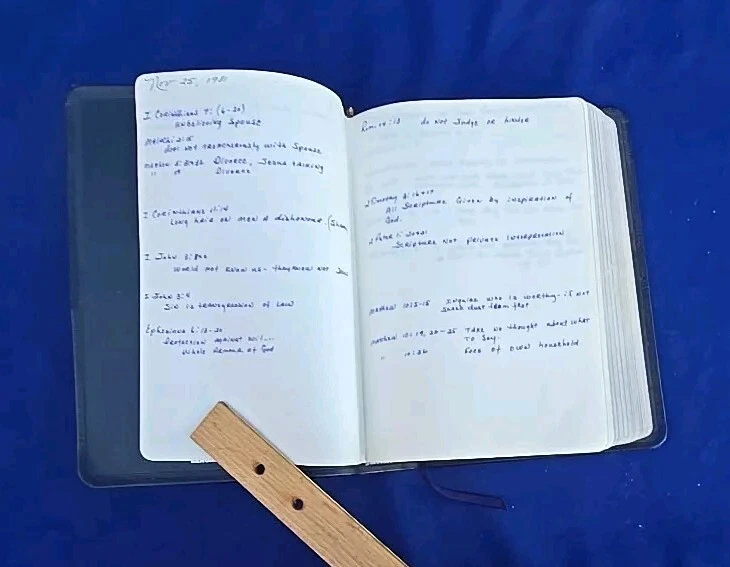 Nov 25, 1981
I Corinthians 7: (6-20)
Unbelieving Spouse
Malachi 2:15
deal not treacherously with Spouse
Matthew 5: Divorce, Jesus talking
" 19 Divorce
I Corinthians 11:14
Long hair on men a dishonour.
I John 3:
World not know us - they knew not
I John 3:4
Sin is transgression of Law
Ephesians 6:13-20
Protection against evil....
Whole Armour of God
Rom. 14:13 do Not Judge or hinder
2 Timothy 3:16+17
All Scripture Given by inspiration of
God.
2 Peter 1:20+21
Scripture Not private interpretation
Matthew 10:5-15 Inquire who is worthy - if Not
Shake dust from feet
Matthew 10:19, Take No thought about what
To Say.
" 10:36 Foes of own household